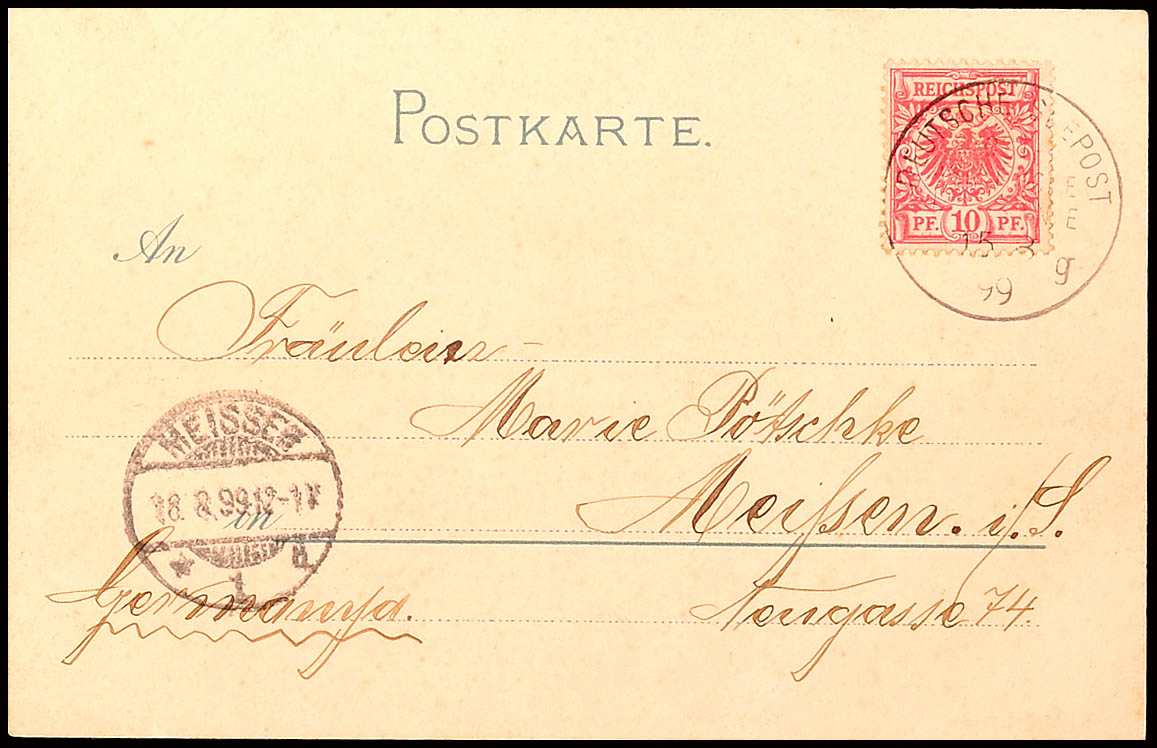 POSTKARTE.
REICHSPOST
PF. 10 PF.
DEUTSCHE SEEPOST
15 8
99 g
An
Fräulein
Marie Pötschke
Meißen. i/S.
MEISSEN
18. 8. 99. 12-1 V
1
in
Neugasse 74.